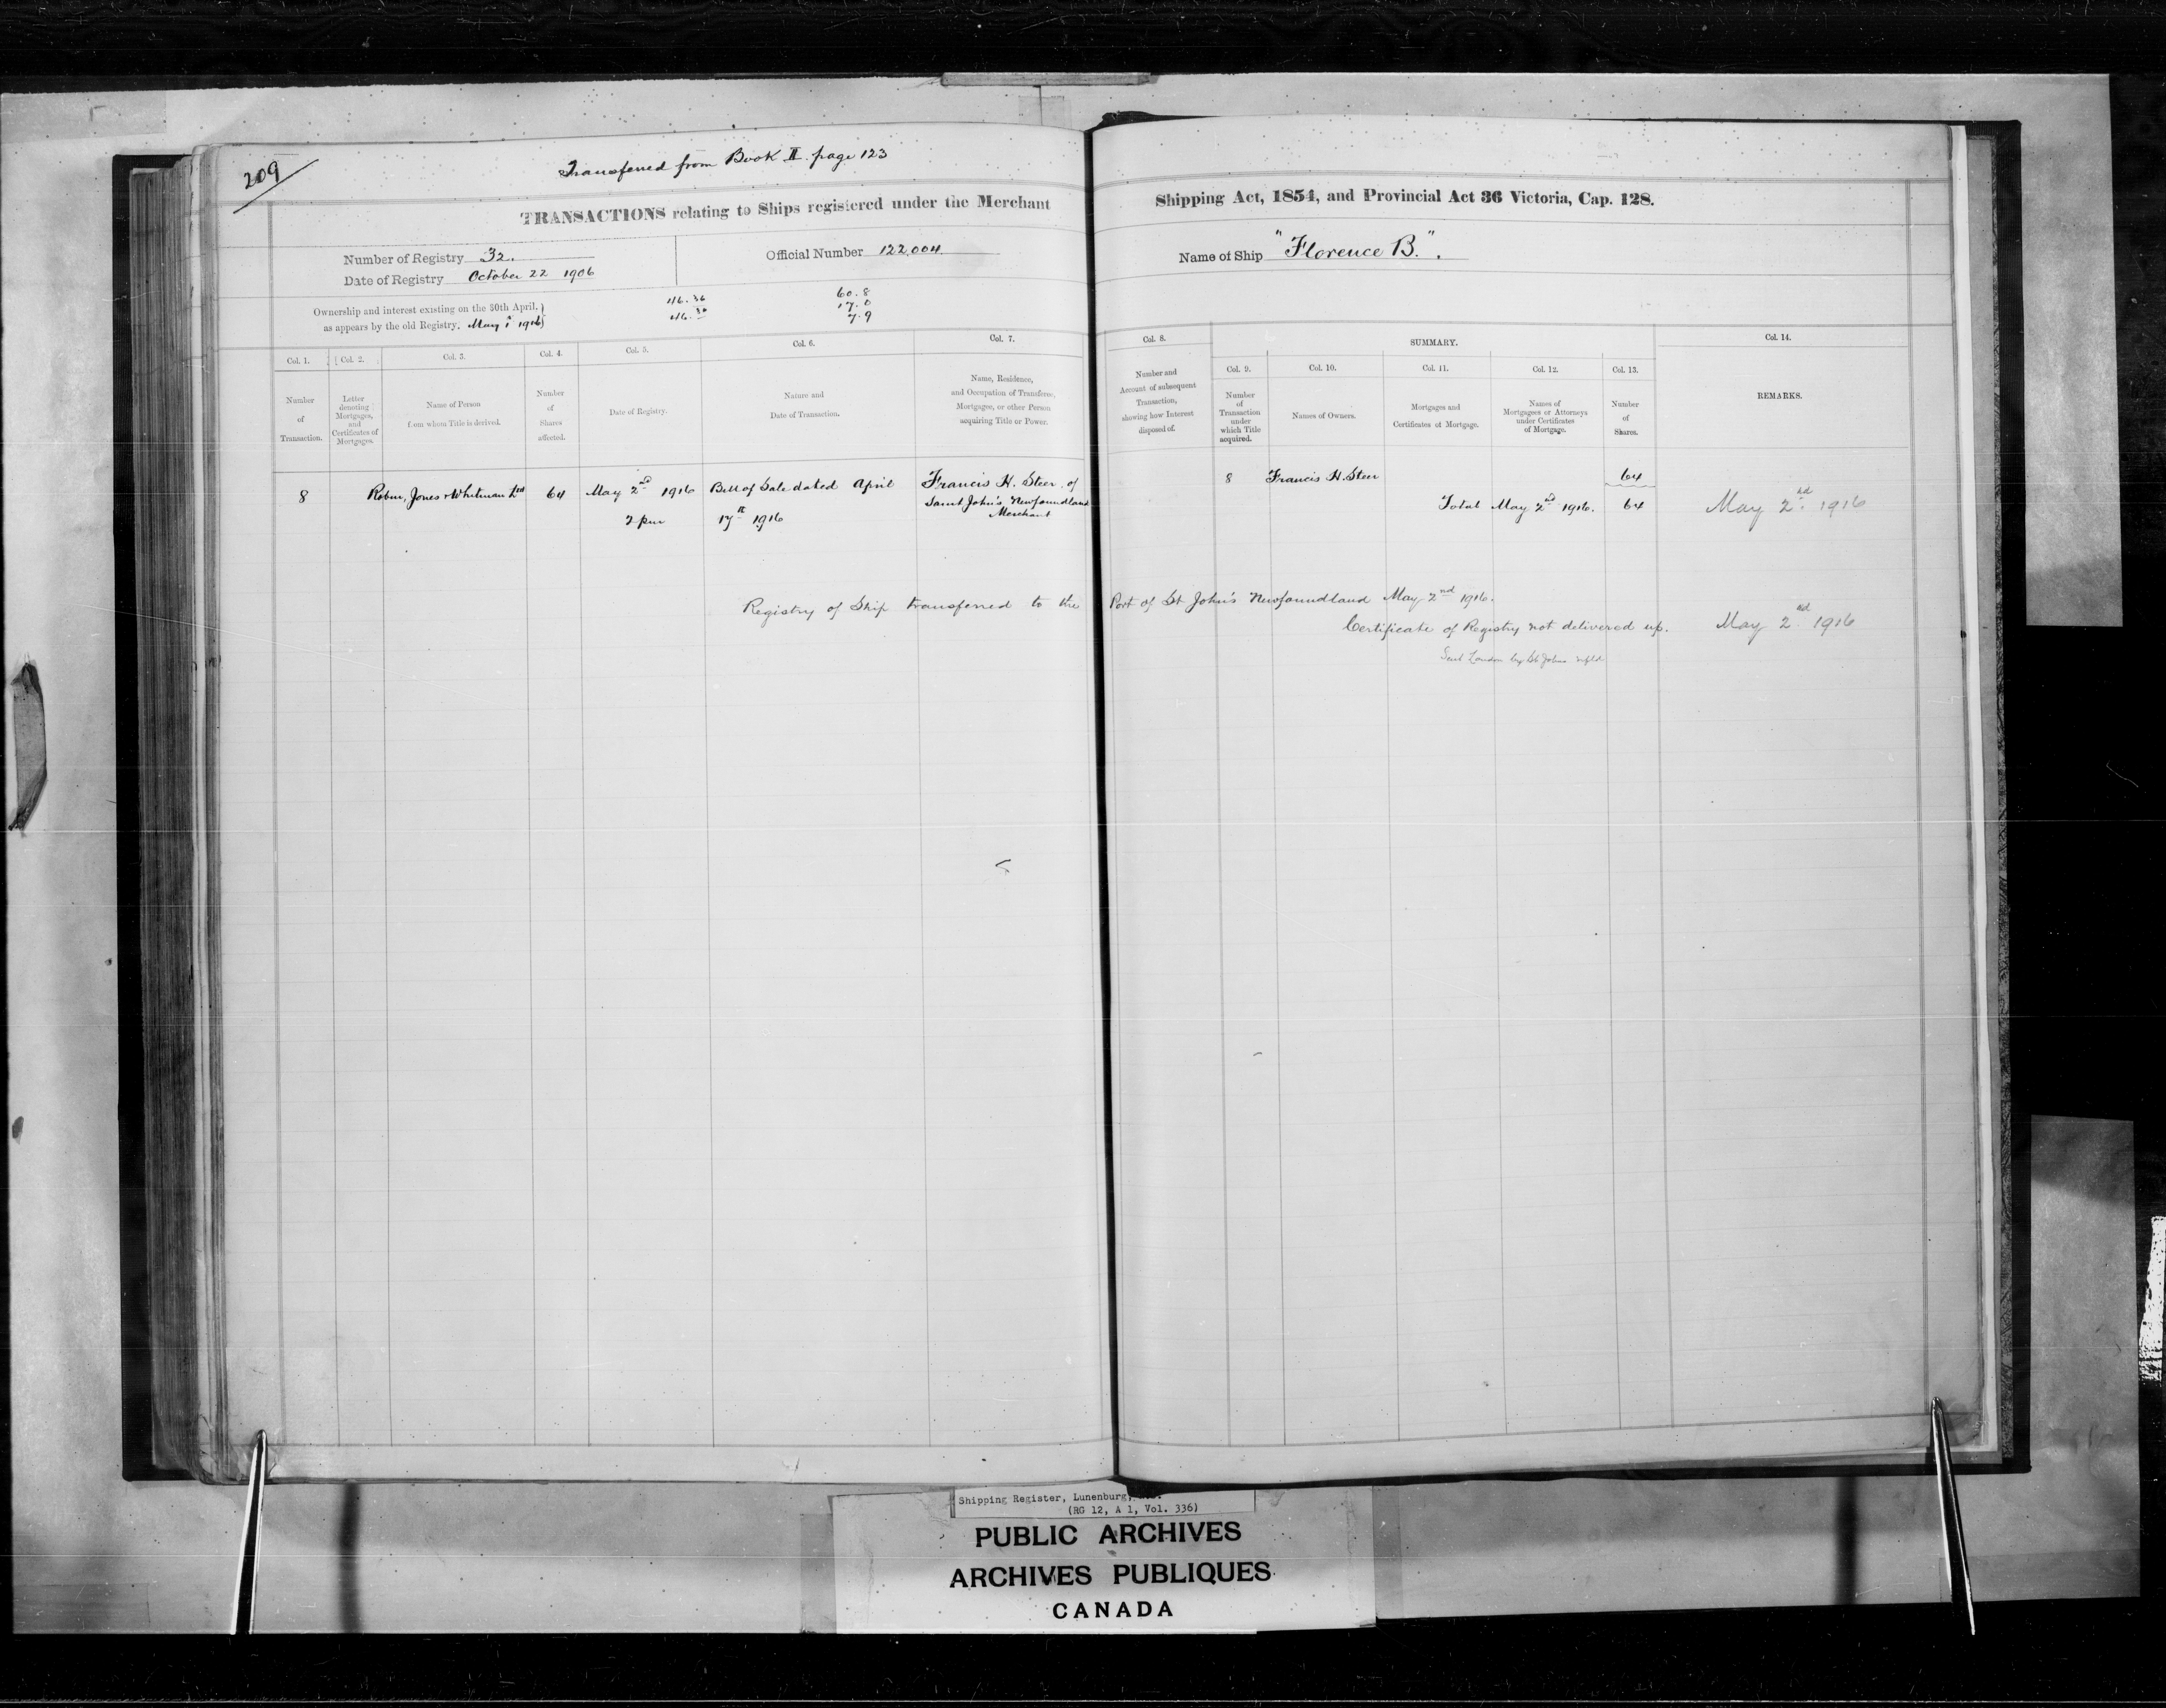 209
Transferred from Book II. page 123
TRANSACTIONS relating to Ships registered under the Merchant Shipping Act, 1854, and Provincial Act 36 Victoria, Cap. 128.
Number of Registry 32.
Official Number 122,004.
Name of Ship "Florence B.".
Date of Registry October 22 1906
Ownership and interest existing on the 30th April,
as appears by the old Registry. May 1st 1916
116.36
46.30
60.8
17.0
7.9
Col. 1.
Number
of
Transaction.
Col. 2.
Letter
denoting
Mortgages,
and
Certificates of
Mortgages.
Col. 3.
Name of Person
from whom Title is derived.
Col. 4.
Number
of
Shares
affected.
Col. 5.
Date of Registry.
Col. 6.
Nature and
Date of Transaction.
Col. 7.
Name, Residence,
and Occupation of Transferee,
Mortgagee, or other Person
acquiring Title or Power.
Col. 8.
Number and
Account of subsequent
Transaction,
showing how Interest
disposed of.
SUMMARY.
Col. 9.
Number
of
Transaction
under
which Title
acquired.
Col. 10.
Names of Owners.
Col. 11.
Mortgages and
Certificates of Mortgage.
Col. 12.
Names of
Mortgagees or Attorneys
under Certificates
of Mortgage.
Col. 13.
Number
of
Shares.
Col. 14.
REMARKS.
8
Robin, Jones & Whitman Ltd
64
May 2nd 1916
2 pm
Bill of Sale dated April
17th 1916
Francis H. Steer of
Saint John's Newfoundland
Merchant
8
Francis H. Steer
64
Total May 2nd 1916. 64
May 2nd 1916
Registry of Ship transferred to the Port of St John's Newfoundland May 2nd 1916.
Certificate of Registry not delivered up.
May 2nd 1916
Sent London by St Johns nfld
Shipping Register, Lunenburg,
(RG 12, A 1, Vol. 336)
PUBLIC ARCHIVES
ARCHIVES PUBLIQUES
CANADA